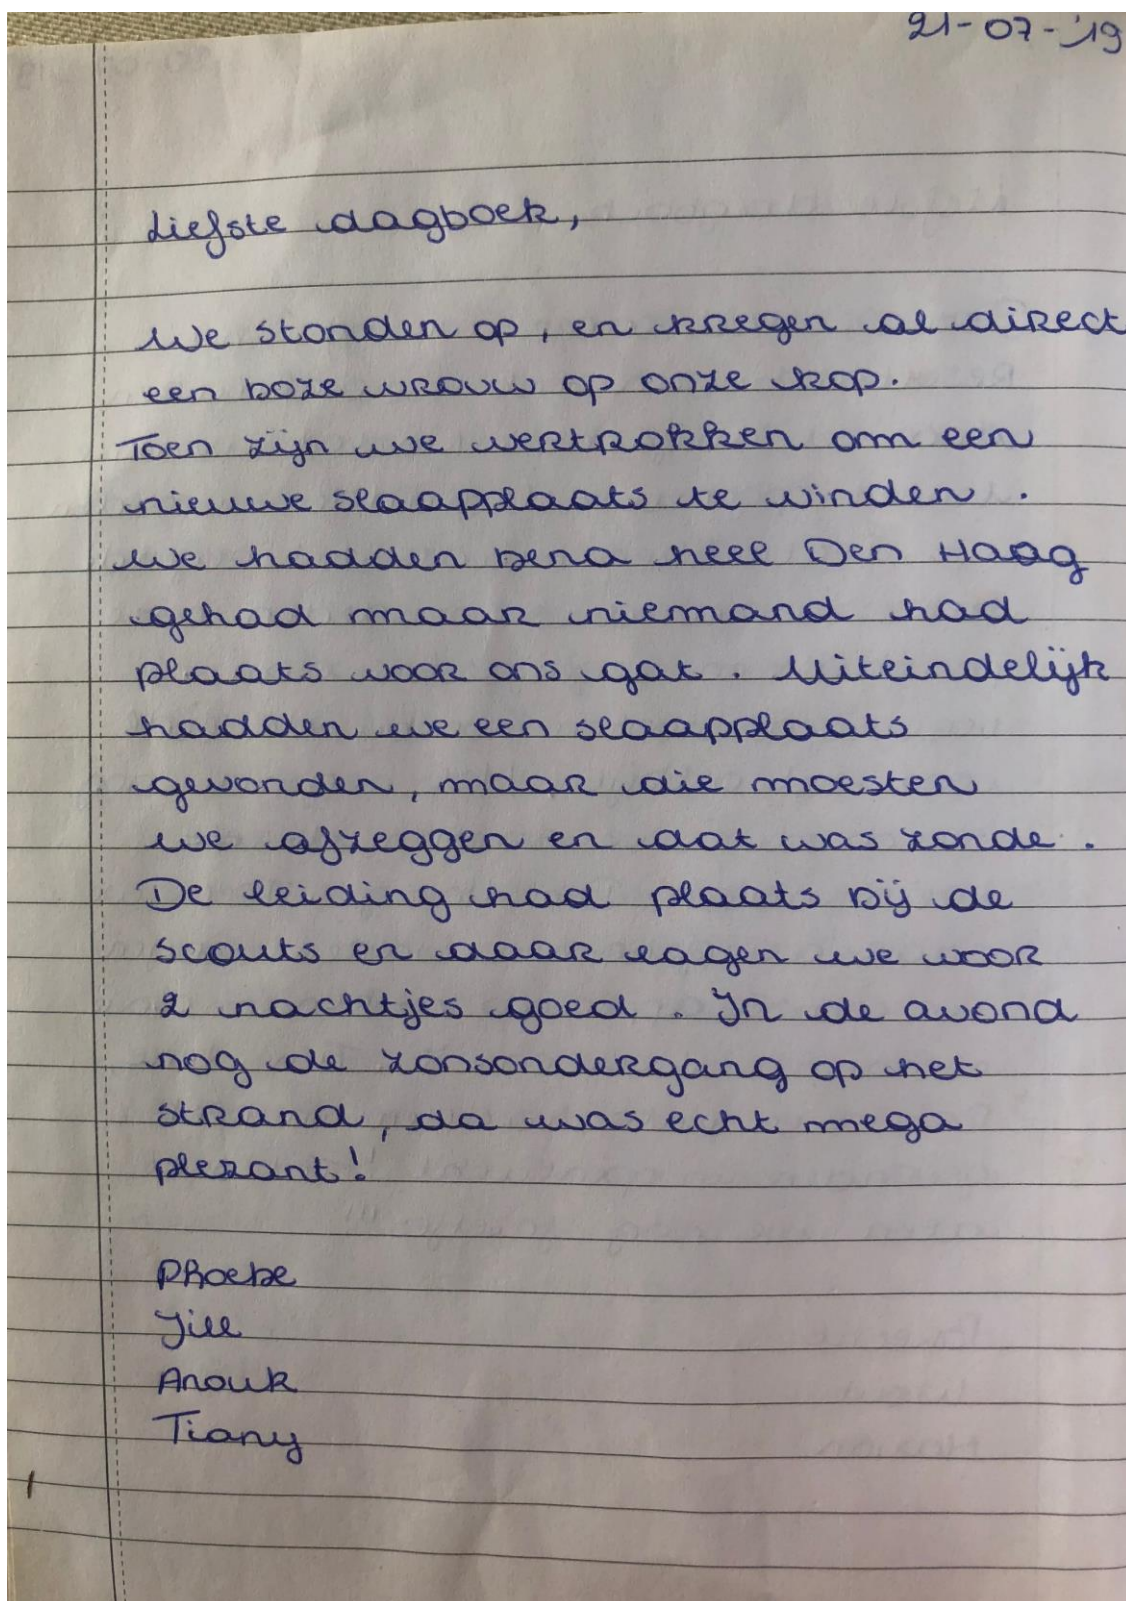 21-07-'19
Liefste dagboek,
We stonden op, en kregen al direct
een boze vrouw op onze kop.
Toen zijn we vertrokken om een
nieuwe slaapplaats te vinden.
We hadden bena heel Den Haag
gehad maar niemand had
plaats voor ons gat. Uiteindelijk
hadden we een slaapplaats
gevonden, maar die moesten
we afzeggen en dat was zonde.
De leiding had plaats bij de
scouts en daar lagen we voor
2 nachtjes goed. In de avond
nog de zonsondergang op het
strand, da was echt mega
plezant!
Phoebe
Jill
Anouk
Tiany